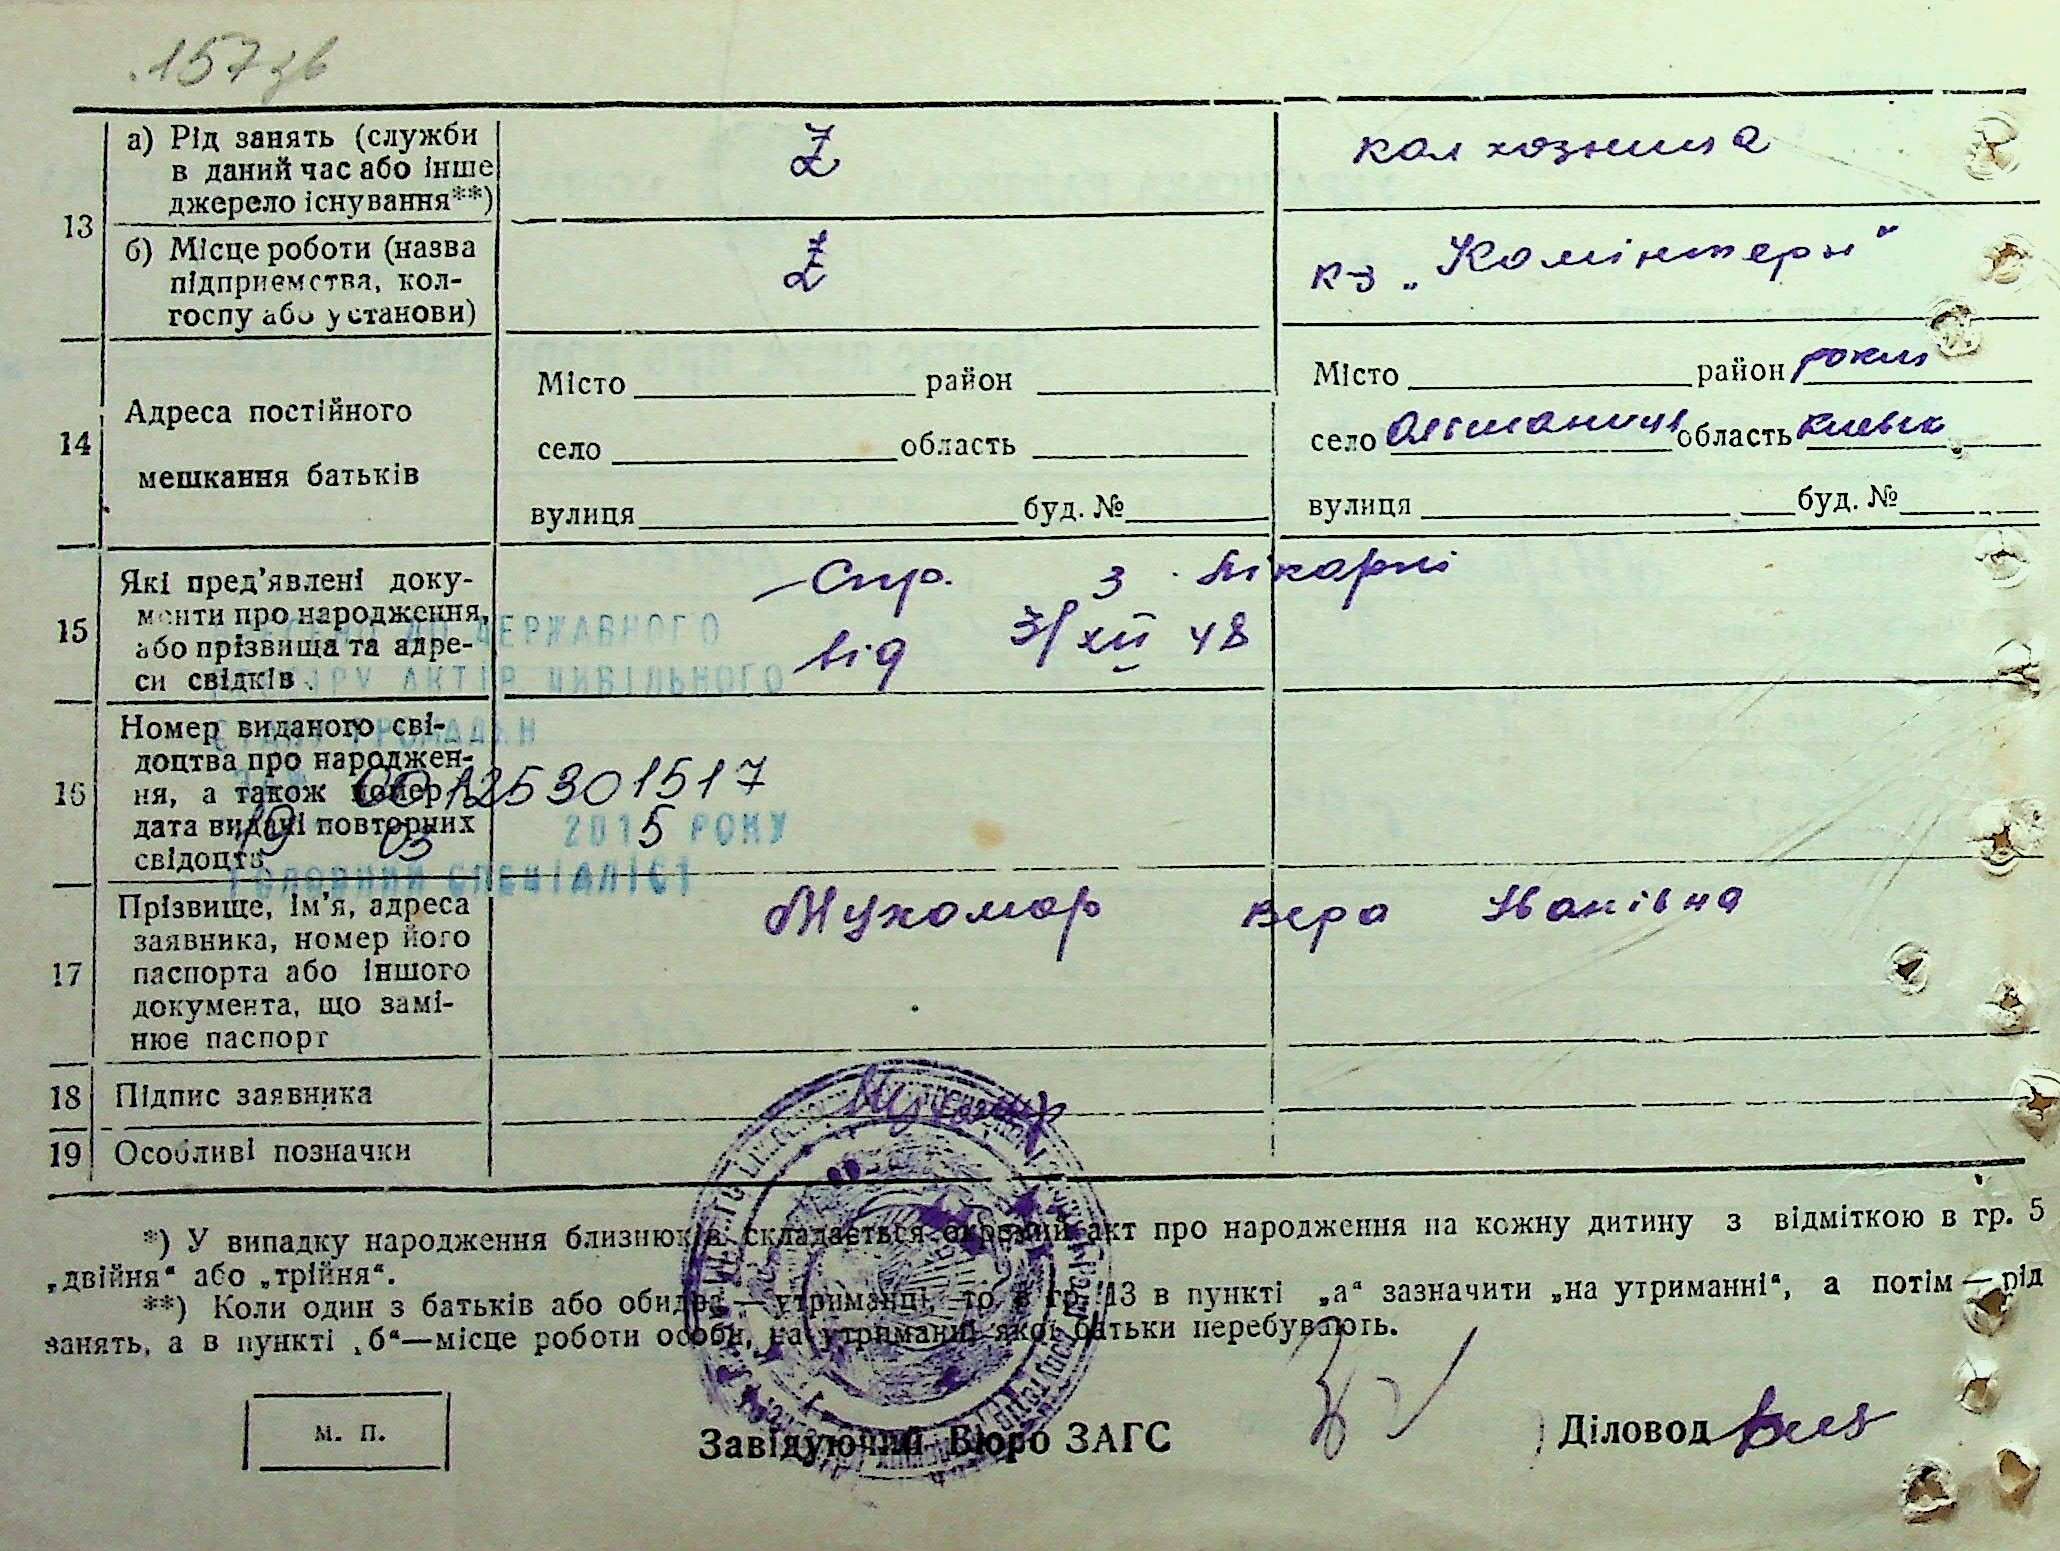 157 зв
13
а) Рід занять (служби
в даний час або інше
джерело існування**)
Z
колхозниця
б) Місце роботи (назва
підприємства, кол-
госпу або установи)
Z
к-з „Комінтерн"
14
Адреса постійного
мешкання батьків
Місто район
село область
вулиця буд. №
Місто район рокит
село Ольшаниця область Киевск
вулиця буд. №
15
Які пред'явлені доку-
менти про народження,
або прізвища та адре-
си свідків.
Спр. з лікарні
від 31 XII 48
ДО ДЕРЖАВНОГО
РЕЄСТРУ АКТІВ ЦИВІЛЬНОГО
СТАНУ ГРОМАДЯН
16
Номер виданого сві-
доцтва про народжен-
ня, а також номер і
дата видачі повторних
свідоцтв
00125301517
19 03 2015 РОКУ
ГОЛОВНИЙ СПЕЦІАЛІСТ
17
Прізвище, ім'я, адреса
заявника, номер його
паспорта або іншого
документа, що замі-
нює паспорт
Мухомор Вера Іванівна
18
Підпис заявника
Мухомор
19
Особливі позначки
*) У випадку народження близнюків складається окремий акт про народження на кожну дитину з відміткою в гр. 5
„двійня" або „трійня".
**) Коли один з батьків або обидва — утриманці, то в гр. 13 в пункті „а" зазначити „на утриманні", а потім — рід
занять, а в пункті „б"—місце роботи особи, на утриманні якої батьки перебувають.
м. п.
Завідуючий Бюро ЗАГС
Діловод